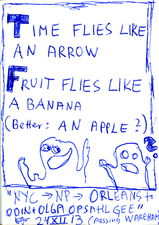 TIME FLIES LIKE
AN ARROW
FRUIT FLIES LIKE
A BANANA
(Better: AN APPLE?)
?
"NYC → NP → ORLEANS to
ODIN + OLGA OPSAHL GEE"
for 24XII13 (passing WAREHAM)